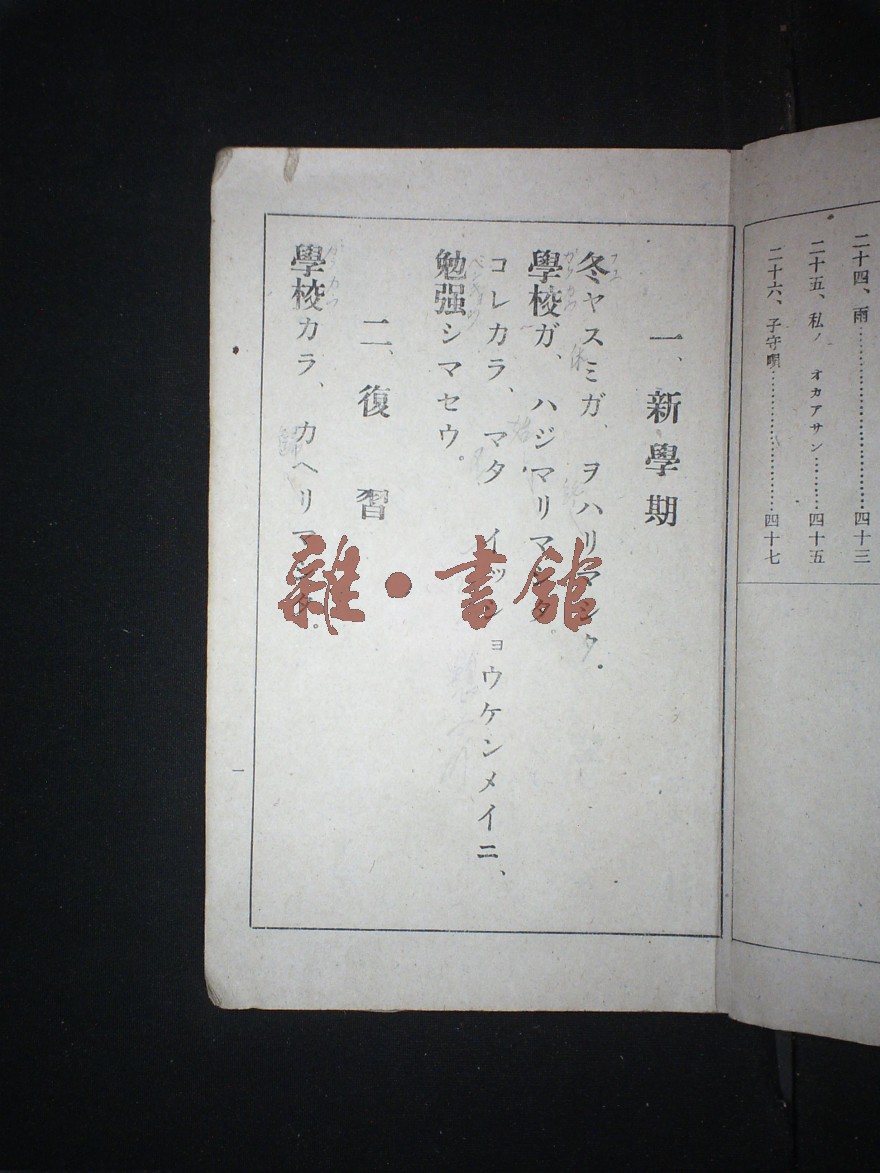 二十四、雨……………………四十三
二十五、私ノ オカアサン………四十五
二十六、子守唄…………………四十七
一、新學期
冬ヤスミガ、ヲハリマシタ。
學校ガ、ハジマリマシタ。
コレカラ、マタ イッショウケンメイニ、
勉强シマセウ。
二、復習
學校カラ、カヘリマシタ。
一
雜·書館